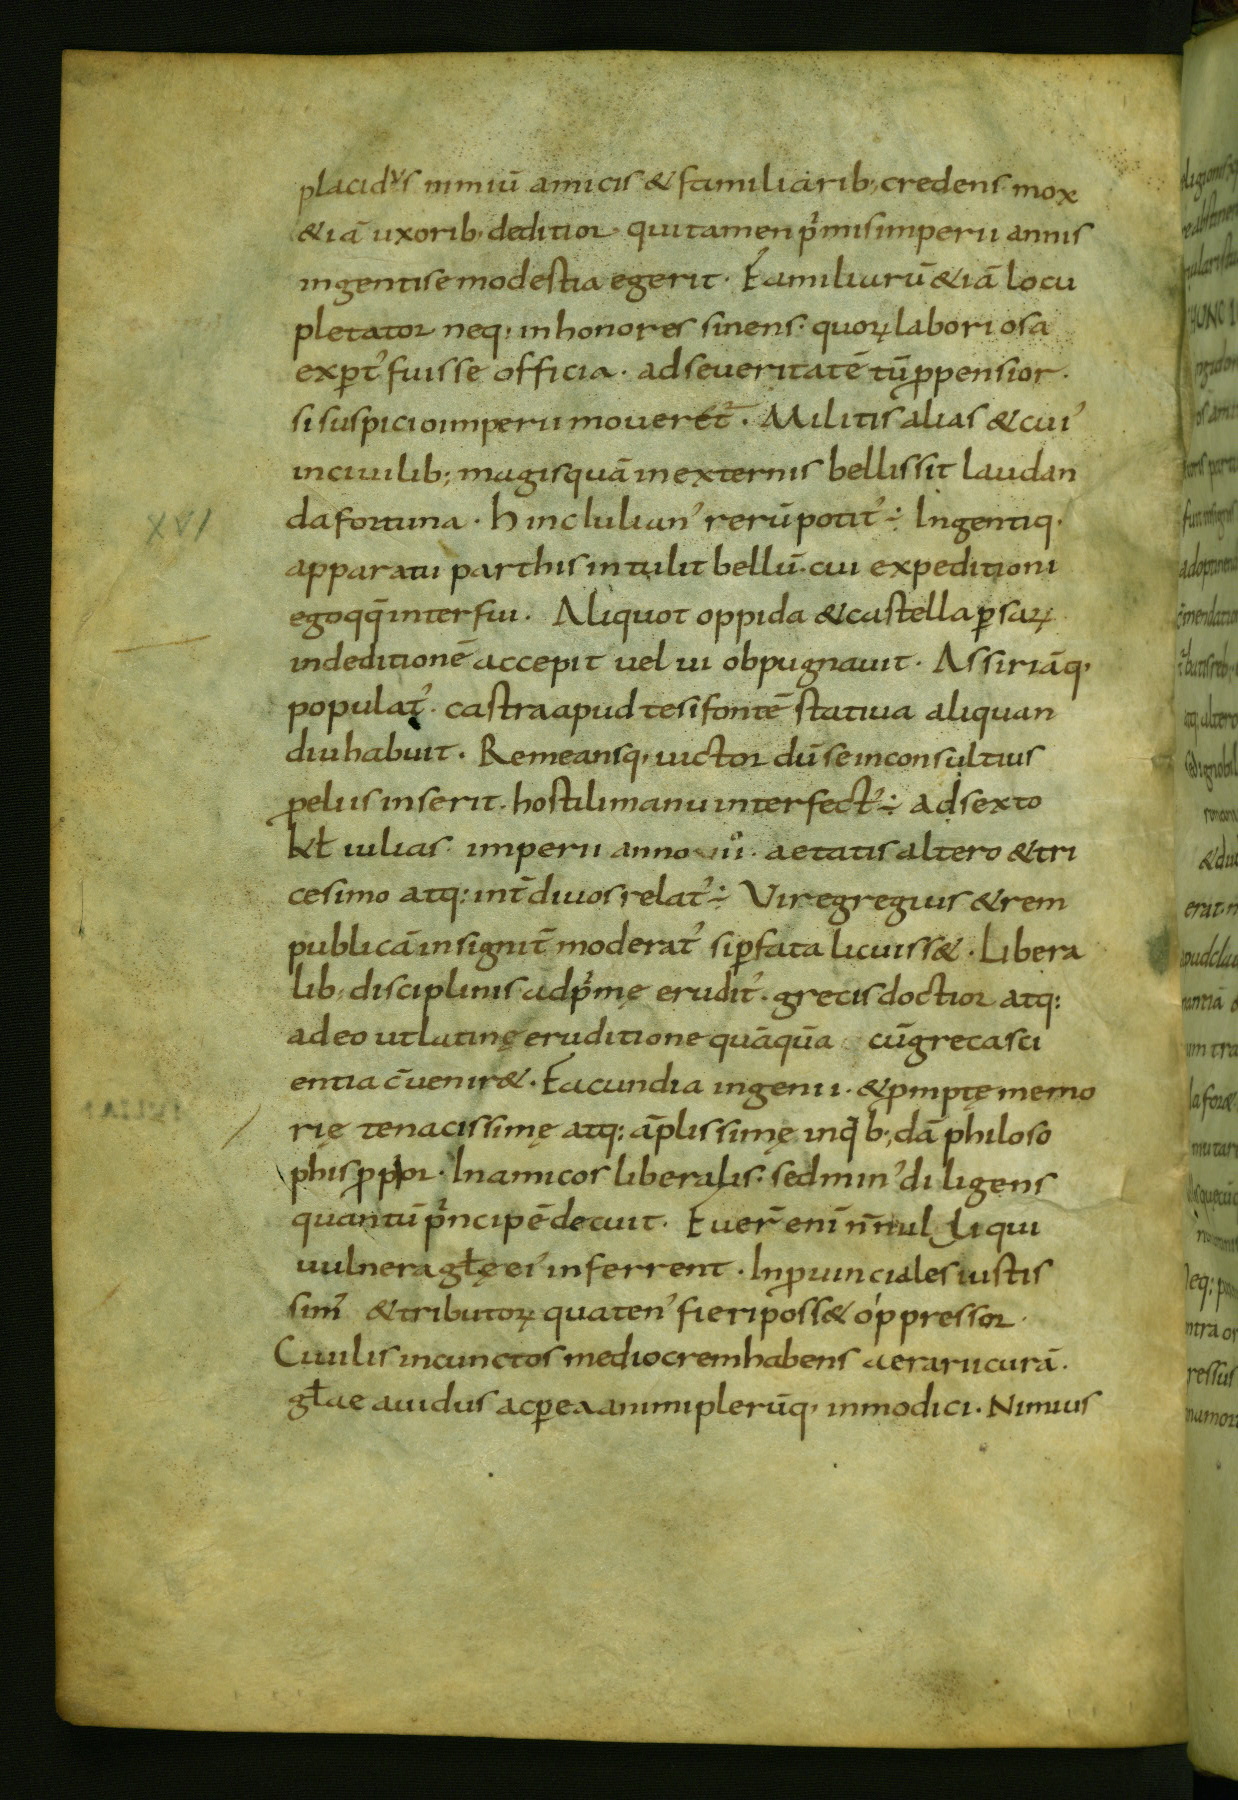 placidus nimiū amicis & familiarib; credens mox
& iā uxorib; deditior· qui tamen pͥmis imperii annis
ingenti se modestia egerit· Familiarū & iā locu
pletator neq; inhonores sinens· quoꝝ labori osa
exꝑt᾽ fuisse officia· ad seueritatē tū ꝓpensior·
si suspicio imperii mouerēt᾽· Militis alias & cui᾽
inciuilib; magis quā in externis bellis sit laudan
da fortuna· hinc Iulian᾽ rerū potit᾽ ÷ Ingentiq·
XVI
apparatu parthis intulit bellū· cui expeditioni
ego qq̄ interfui· Aliquot oppida & castella ꝑsaꝝ
in deditionē accepit uel ui obpugnauit· Assiriāq;
populat᾽· castra apud tesifontē statiua aliquan
diu habuit· Remeansq; uictor dū se inconsultius
ꝓeliis inserit· hostili manu interfect᾽ ÷ ad sexto
kł iulias· imperii anno uıı· aetatis altero & tri
cesimo atq: int̄ diuos relat᾽ ÷ Vir egregius & rem
publicā insignit̄ moderat᾽ si ꝑ fata licuiss&· Libera
lib; disciplinis adpͥmę erudit᾽· grecis doctior atq:
adeo ut latinę eruditione quāquā cū greca sci
entia c̄uenir&· Facundia ingenii· & ꝓmptę memo
rię tenacissimę atq: āplissimę in q̇b; dā philoso
phis ꝓpior· In amicos liberalis· sed min᾽ diligens
quantū pͥncipē decuit· Fuer̄ eni n̄nul li qui
uulnera głę ei᾽ inferrent· In ꝓuinciales iustis
sim᾽ & tributoꝝ quaten᾽ fieri poss& oppressor·
Ciuilis in cunctos mediocrem habens aerarii curā·
głae auidus ac ꝑ ea animi plerūq; inmodici· Nimius